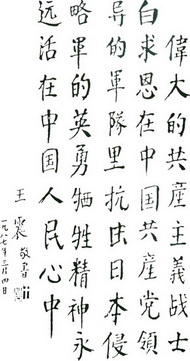 偉大的共産主義战士
白求恩在中国共産党領
导的軍隊里抗击日本侵
略軍的英勇牺牲精神永
远活在中国人民心中
王震敬書
一九八七年三月四日